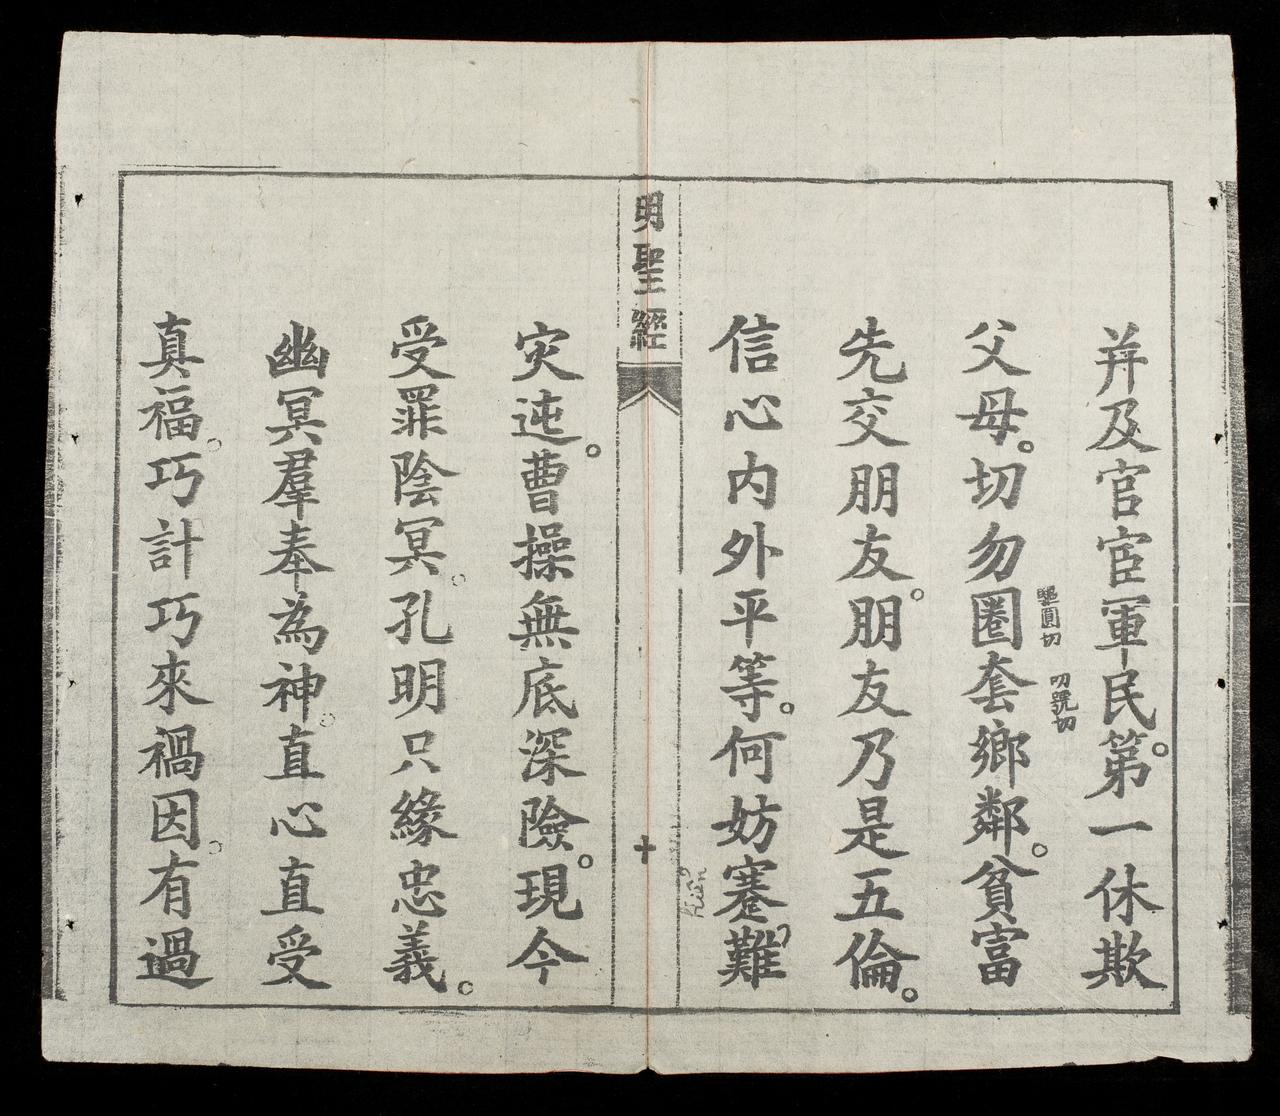 并及官宦軍民。第一休欺
父母。切勿圈套鄉鄰。貧富
驅圓切
叨號切
先交朋友。朋友乃是五倫。
信心內外平等。何妨蹇難
Kiển
明聖經
十
灾迍。曹操無底深險。現今
受罪陰冥。孔明只緣忠義。
幽冥羣奉為神。直心直受
真福。巧計巧來禍因。有過